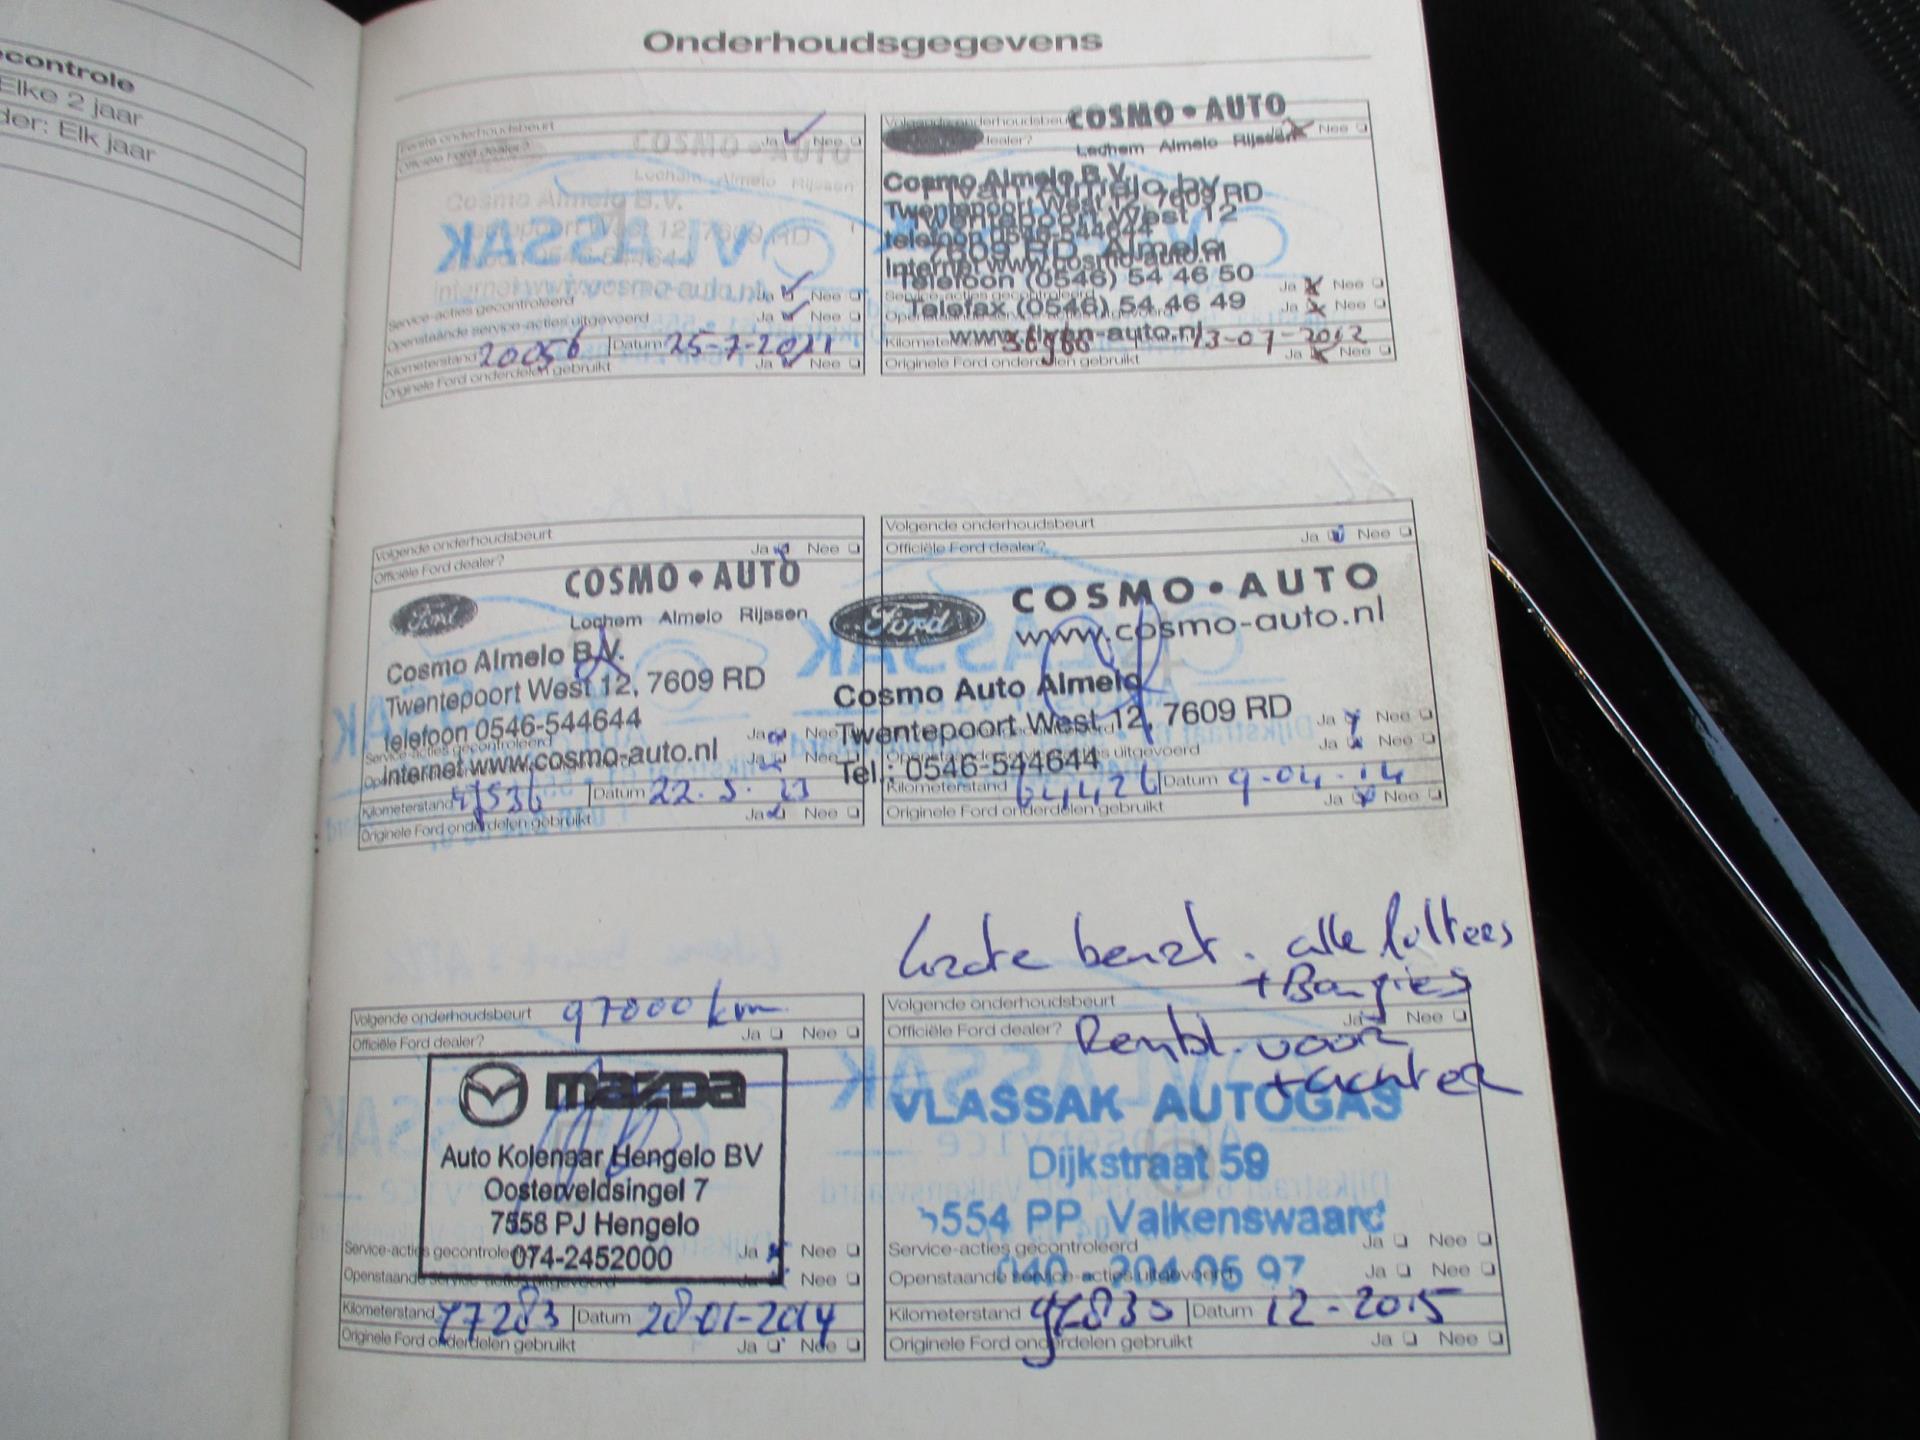 controle
Elke 2 jaar
der: Elk jaar
Onderhoudsgegevens
Eerste onderhoudsbeurt
Officiële Ford dealer? Ja Nee
COSMO • AUTO
Lochem Almelo Rijssen
Cosmo Almelo B.V.
Twentepoort West 12, 7609 RD
telefoon 0546-544644
internet www.cosmo-auto.nl
Service-acties gecontroleerd Ja Nee
Openstaande service-acties uitgevoerd Ja Nee
Kilometerstand 20056 Datum 25-7-2011
Originele Ford onderdelen gebruikt Ja Nee
Volgende onderhoudsbeurt
COSMO • AUTO
dealer? Ja Nee
Lochem Almelo Rijssen
Cosmo Almelo B.V.
Twentepoort West 12, 7609 RD
Twentepoort West 12
telefoon 0546-544644
7609 RD Almelo
Internet www.cosmo-auto.nl
Telefoon (0546) 54 46 50
Service-acties gecontroleerd Ja Nee
Telefax (0546) 54 46 49
Ja Nee
13-07-2012
Originele Ford onderdelen gebruikt Ja Nee
Volgende onderhoudsbeurt
Officiële Ford dealer? Ja Nee
COSMO • AUTO
Ford
Lochem Almelo Rijssen
Cosmo Almelo B.V.
Twentepoort West 12, 7609 RD
telefoon 0546-544644
Service-acties gecontroleerd Ja Nee
internet www.cosmo-auto.nl
Ja Nee
Kilometerstand Datum
Originele Ford onderdelen gebruikt Ja Nee
Volgende onderhoudsbeurt
Officiële Ford dealer? Ja Nee
COSMO • AUTO
Ford
www.cosmo-auto.nl
Cosmo Auto Almelo
Twentepoort West 12, 7609 RD Ja Nee
uitgevoerd Ja Nee
Tel.: 0546-544644
Kilometerstand 64426 Datum 9-04-14
Originele Ford onderdelen gebruikt Ja Nee
Volgende onderhoudsbeurt 97000 km
Officiële Ford dealer? Ja Nee
mazda
Auto Kolenaar Hengelo BV
Oosterveldsingel 7
7558 PJ Hengelo
074-2452000
Service-acties gecontroleerd Ja Nee
Openstaande service-acties uitgevoerd Ja Nee
Kilometerstand 77283 Datum 28-01-2014
Originele Ford onderdelen gebruikt Ja Nee
Grote beurt. alle filters
+ Bougies
Volgende onderhoudsbeurt
Officiële Ford dealer? Ja Nee
Rembl. voor
+ achter
VLASSAK AUTOGAS
Dijkstraat 59
5554 PP Valkenswaard
Service-acties gecontroleerd Ja Nee
Openstaande service-acties uitgevoerd Ja Nee
040 - 204 05 97
Kilometerstand Datum 12-2015
Originele Ford onderdelen gebruikt Ja Nee